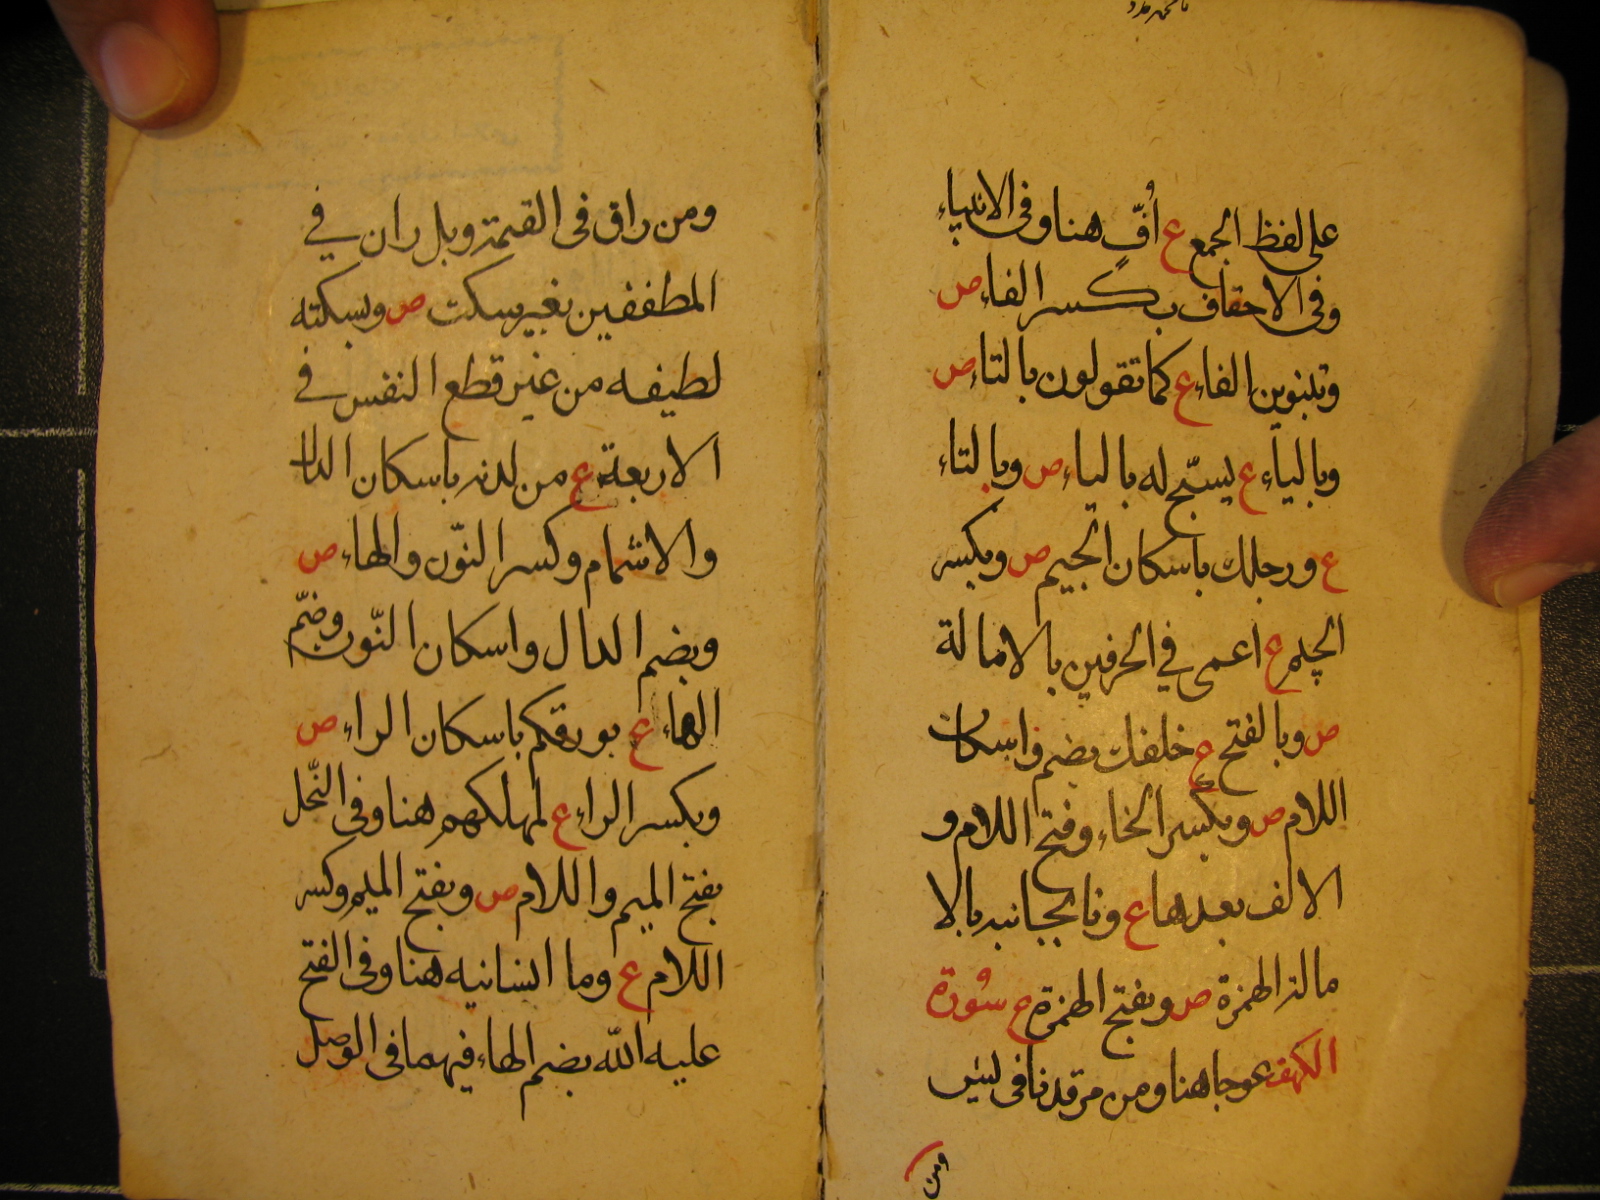 على لفظ الجمع ع أُفٍّ هنا وفى الانبياء
وفى الاحقاف بكسر الفاء ص
وتنوين الفاء ع كما تقولون بالتاء ص
وبالياء ع يسبّح له بالياء ص وبالتاء
ع ورجلك باسكان الجيم ص وبكسر
الجيم ع اعمى في الحرفين بالامالة
ص وبالفتح ع خلفك بضم واسكان
اللام ص وبكسر الخاء وفتح اللام و
الالف بعدها ع ونا بجانبه بالا
مالة الهمزة ص وبفتح الهمزة ع سُورة
الكهف عوجا هنا ومن مرقدنا فى ليس
ومن
ومن راق فى القيمة وبل ران في
المطففين بغير سكت ص وبسكته
لطيفه من غير قطع النفس في
الاربعة ع من لدنه باسكان الدال
والاشمام وكسر النّون والهاء ص
وبضم الدال واسكان النّون وضمّ
الهاء ع بورقكم باسكان الراء ص
وبكسر الراء ع لمهلكهم هنا وفى النّحل
بفتح الميم واللام ص وبفتح الميم وكسر
اللام ع وما انسانيه هنا وفى الفتح
عليه الله بضم الهاء فيهما فى الوصل